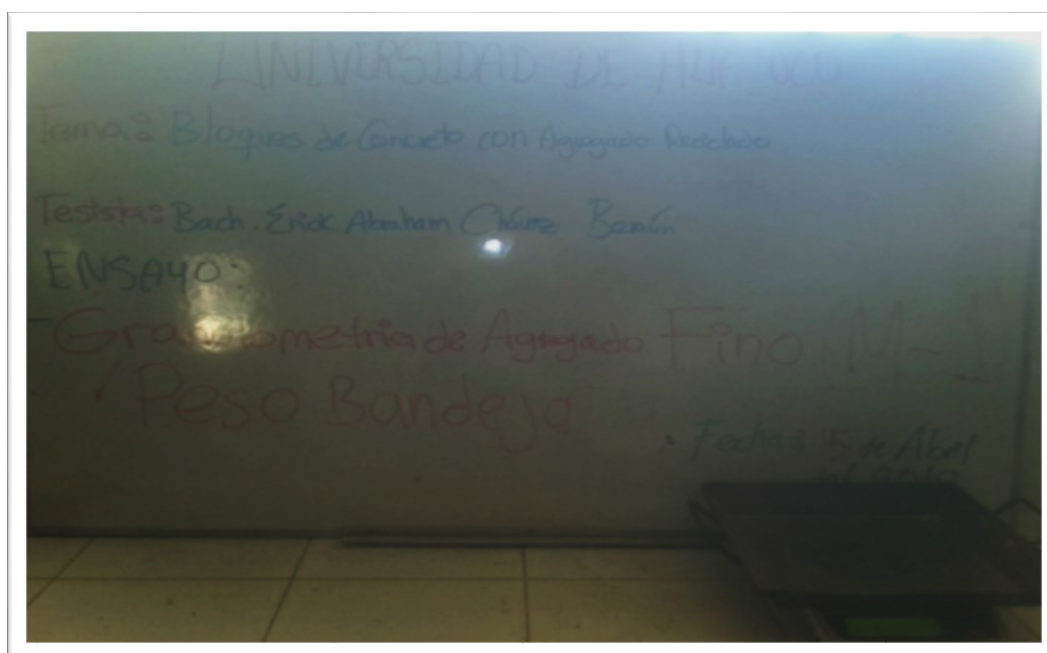 UNIVERSIDAD DE
Tema: Bloques de Concreto con Agregado Reciclado
Tesista: Bach. Erick Abraham Chávez
ENSAYO:
- Granulometria de Agregado Fino M-1
✓ Peso Bandeja
• Fecha: 5 de Abril